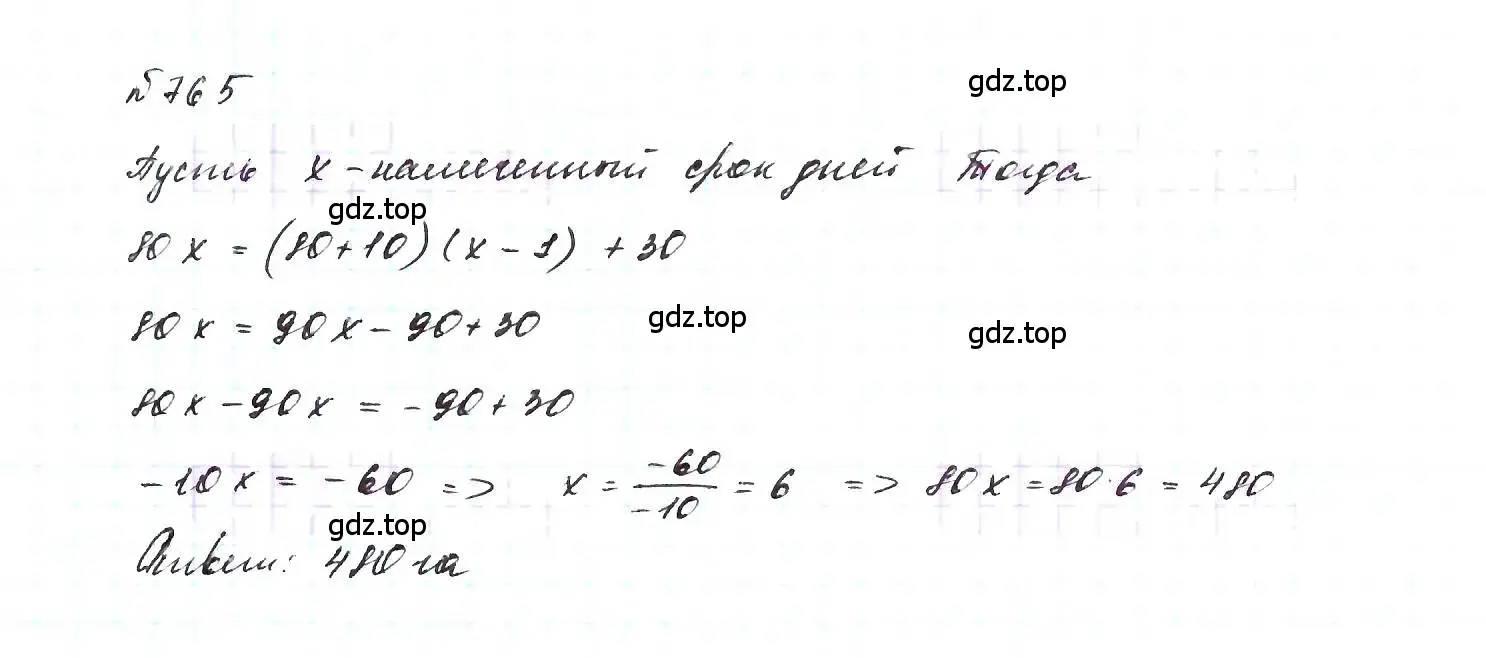 №765
gdz.top
Пусть x - намеченный срок дней Тогда
gdz.top
80x = (80+10)(x-1) + 30
80x = 90x - 90+30
gdz.top
gdz.top
80x - 90x = -90+30
-10x = -60 => x = -60/-10 = 6 => 80x = 80·6 = 480
gdz.top
Ответ: 480 га